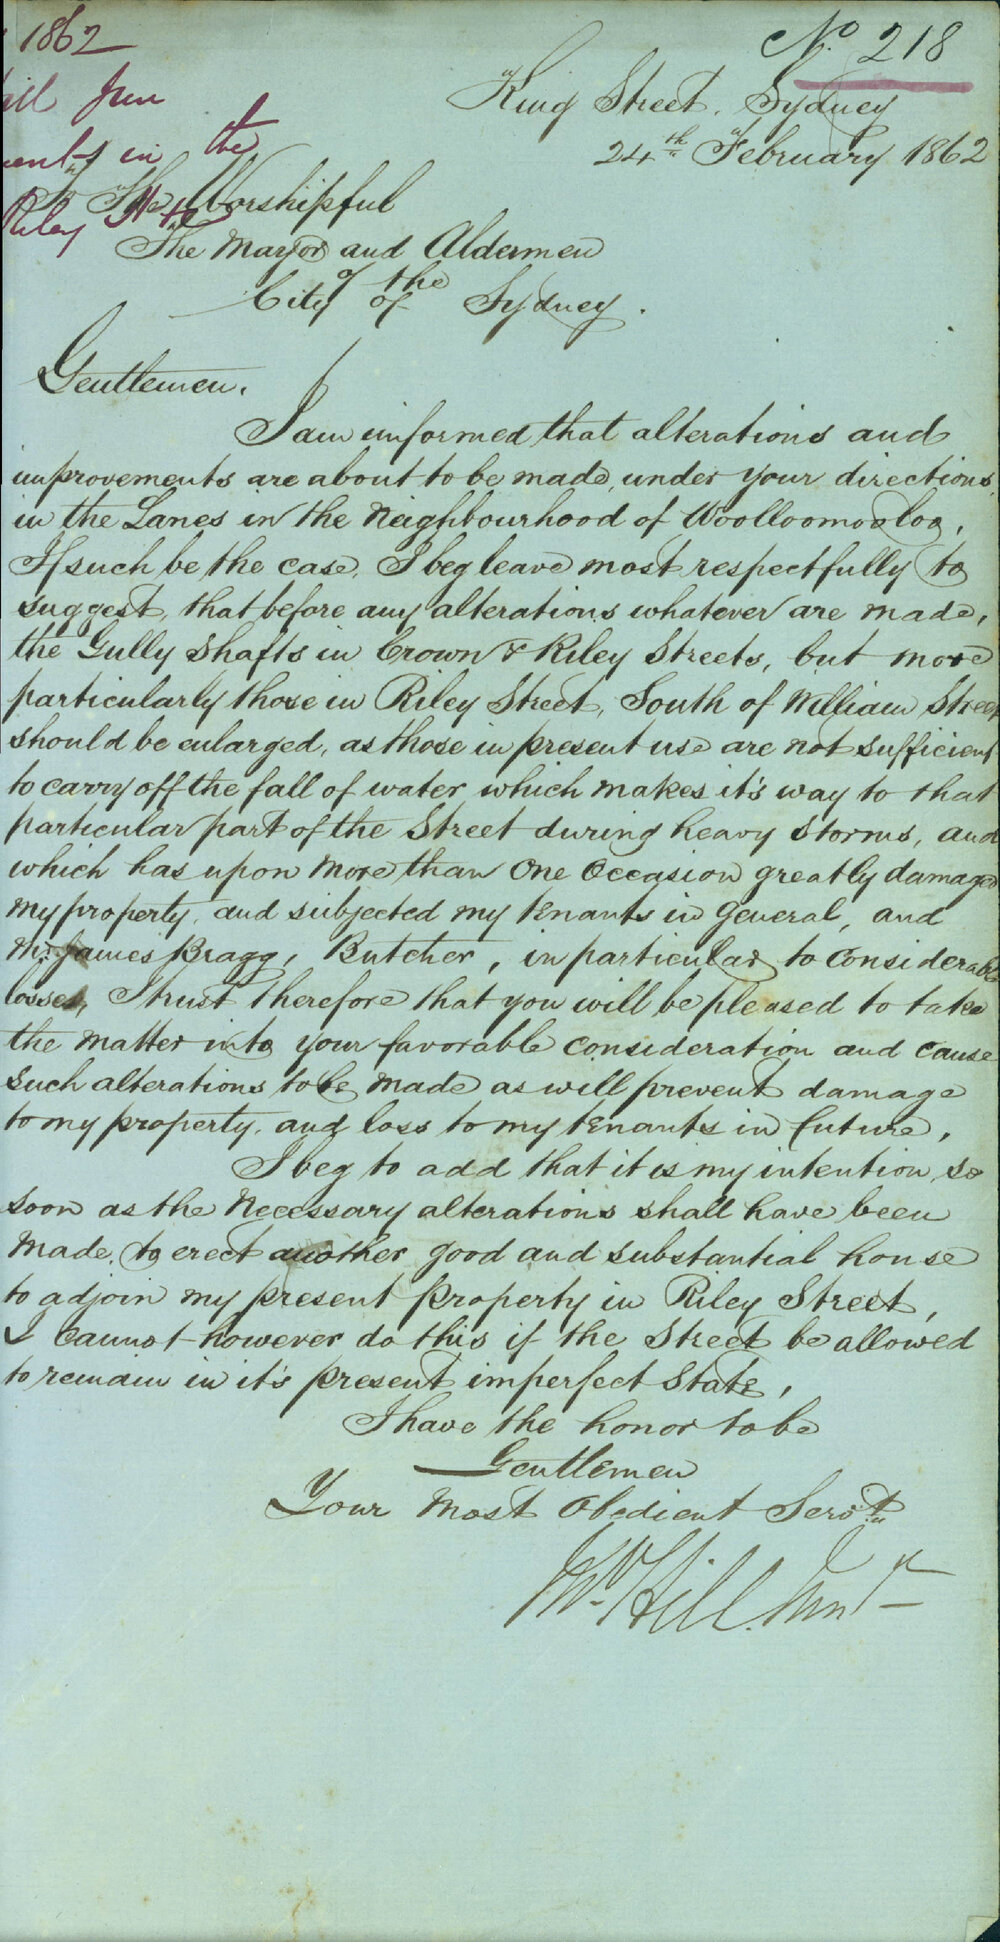 1862
No. 218
ill Jun
King Street, Sydney
ments in the
24th February 1862
To The Worshipful
Riley St
The Mayor and Aldermen
of the
City of Sydney.
Gentlemen,
I am informed that alterations and
improvements are about to be made, under your directions,
in the Lanes in the Neighbourhood of Woolloomooloo,
If such be the case, I beg leave most respectfully to
suggest, that before any alterations whatever are made,
the Gully Shafts in Crown & Riley Streets, but more
particularly those in Riley Street, South of William Street
should be enlarged, as those in present use are not sufficient
to carry off the fall of water which makes it's way to that
particular part of the Street during heavy storms, and
which has upon more than one occasion greatly damaged
my property, and subjected my tenants in General, and
Mr. James Bragg, Butcher, in particular to considerable
losses, I trust therefore that you will be pleased to take
the matter into your favorable consideration and cause
such alterations to be made as will prevent damage
to my property, and loss to my tenants in future,
I beg to add that it is my intention, so
soon as the Necessary alterations shall have been
made, to erect another good and substantial house
to adjoin my present property in Riley Street,
I cannot however do this if the Street be allowed
to remain in it's present imperfect state,
I have the honor to be
Gentlemen
Your Most Obedient Servt
Hill. Junr